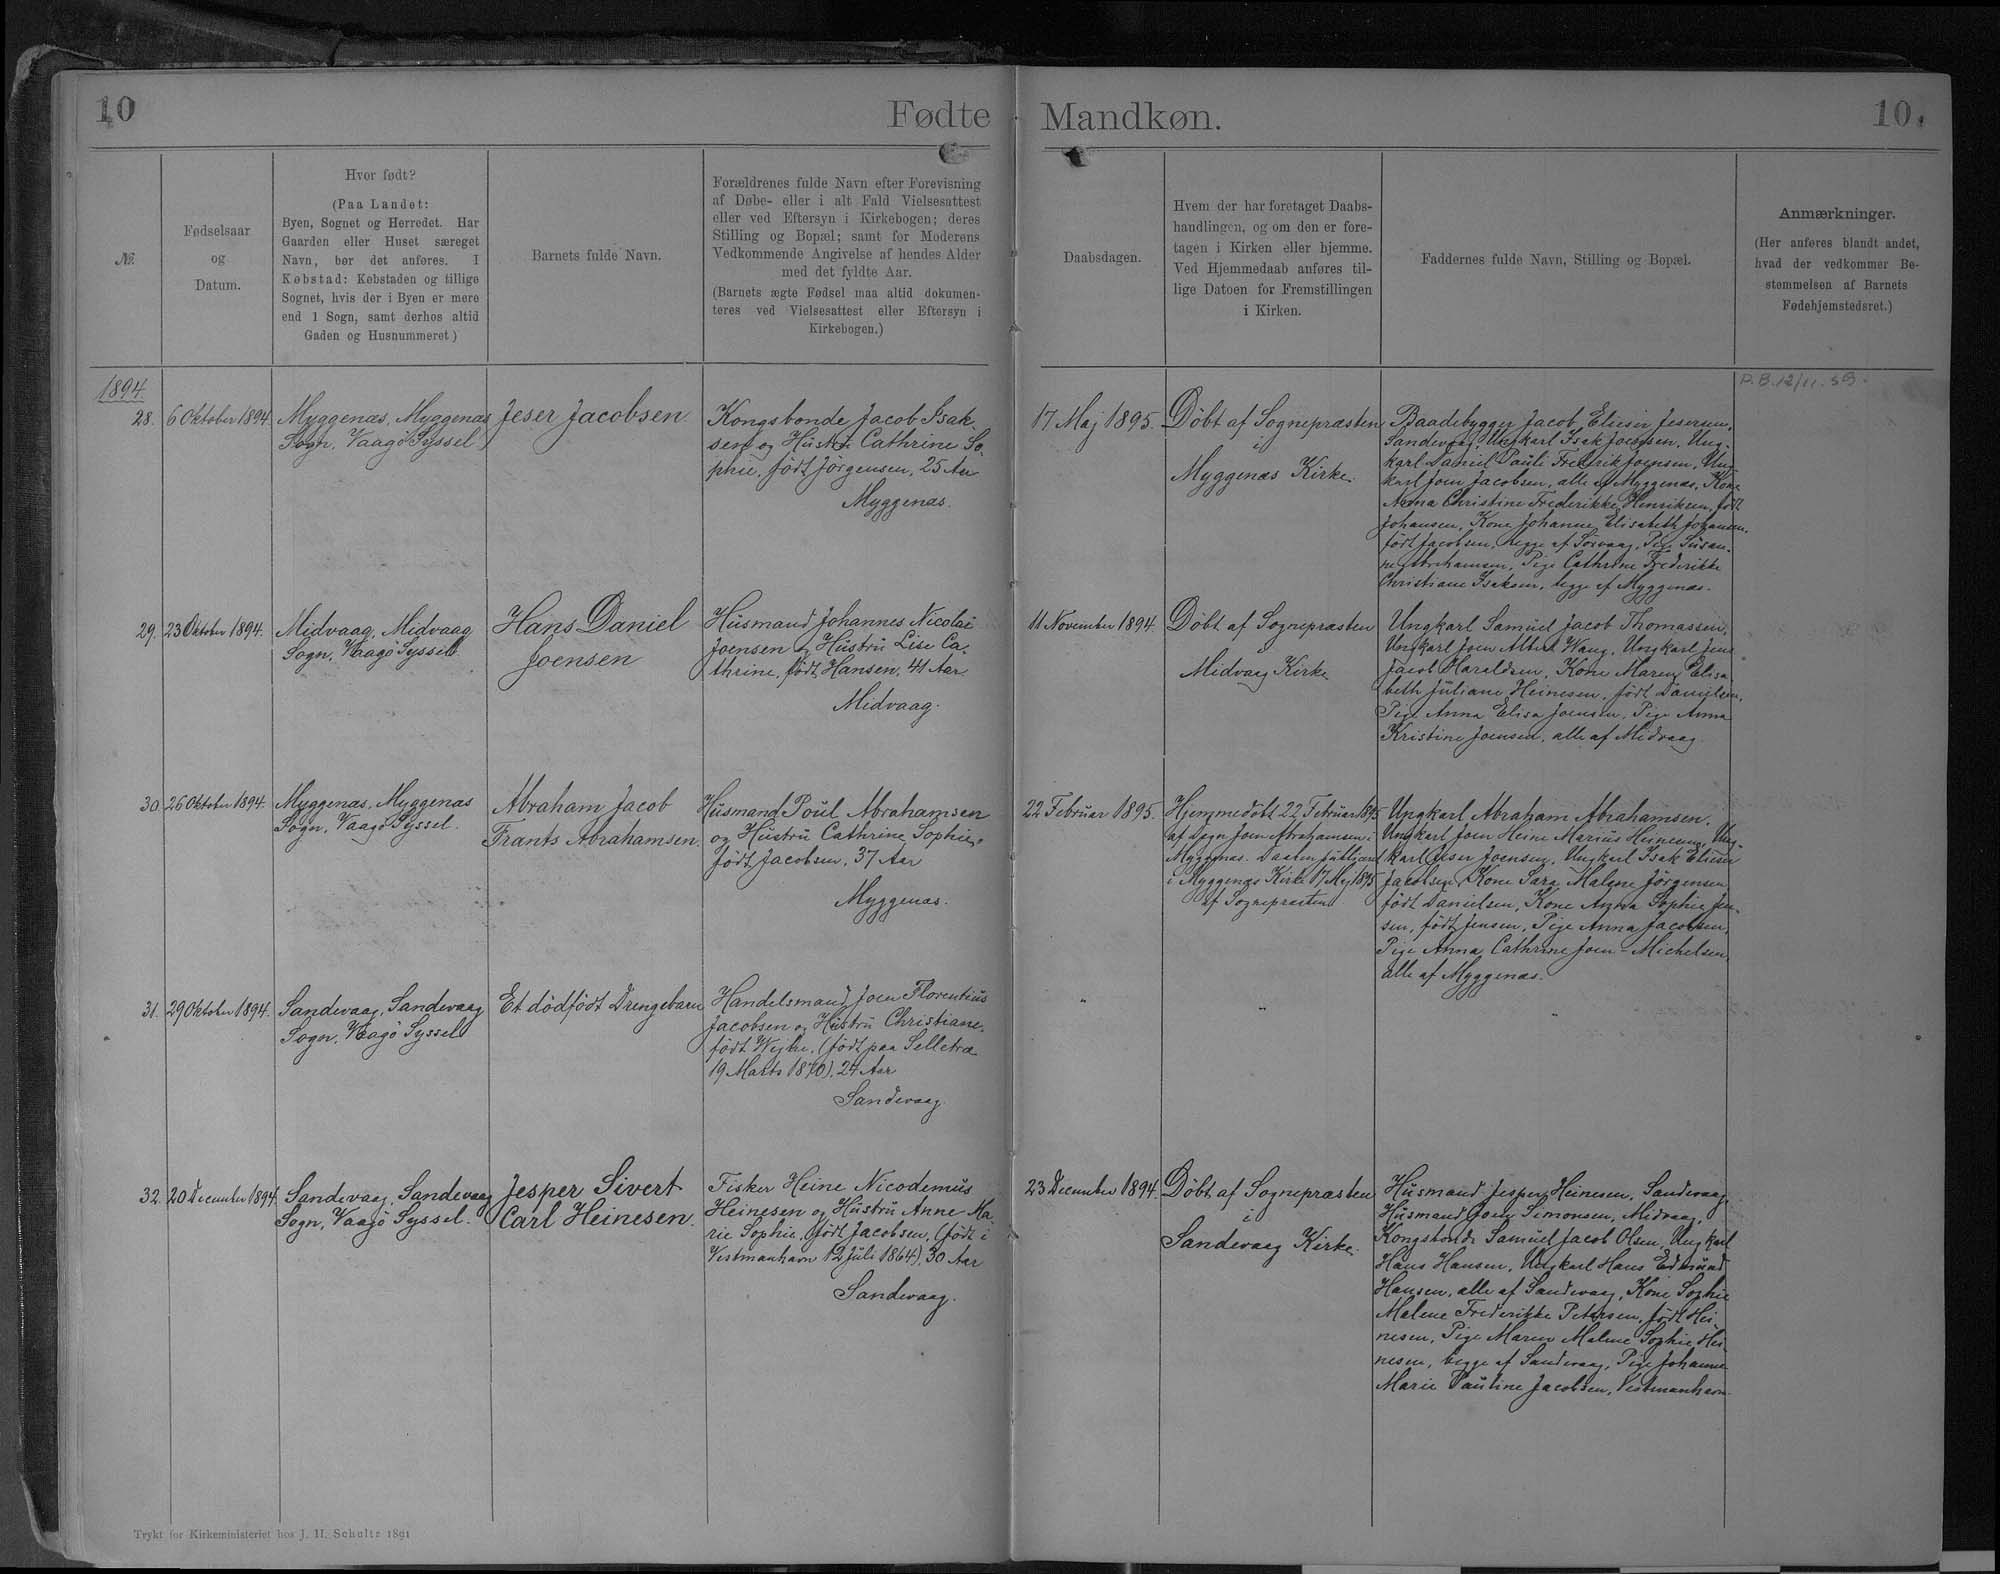 10
Fødte
Mandkøn.
10.
№.
Fødselsaar
og
Datum.
Hvor født?
(Paa Landet:
Byen, Sognet og Herredet. Har
Gaarden eller Huset særeget
Navn, bør det anføres. I
Købstad: Købstaden og tillige
Sognet, hvis der i Byen er mere
end 1 Sogn, samt derhos altid
Gaden og Husnummeret)
Barnets fulde Navn.
Forældrenes fulde Navn efter Forevisning
af Døbe- eller i alt Fald Vielsesattest
eller ved Eftersyn i Kirkebogen; deres
Stilling og Bopæl; samt for Moderens
Vedkommende Angivelse af hendes Alder
med det fyldte Aar.
(Barnets ægte Fødsel maa altid dokumen-
teres ved Vielsesattest eller Eftersyn i
Kirkebogen.)
Daabsdagen.
Hvem der har foretaget Daabs-
handlingen, og om den er fore-
tagen i Kirken eller hjemme.
Ved Hjemmedaab anføres til-
lige Datoen for Fremstillingen
i Kirken.
Faddernes fulde Navn, Stilling og Bopæl.
Anmærkninger.
(Her anføres blandt andet,
hvad der vedkommer Be-
stemmelsen af Barnets
Fødehjemstedsret.)
1894.
28.
6 Oktober 1894.
Myggenæs, Myggenæs
Sogn, Vaagö Syssel.
Jeser Jacobsen
Kongsbonde Jacob Isak-
sen og Hustru Cathrine So-
phie, født Jörgensen, 25 Aar
Myggenæs.
17 Maj 1895.
Döbt af Sognepræsten
i
Myggenæs Kirke.
Baadebygger Jacob Elieser Jesersen,
Sandevaag, Ungkarl Isak Joensen, Ung-
karl Daniel Pauli Fredrik Joensen, Ung-
karl Joen Jacobsen, alle af Myggenæs, Kone
Anna Christine Frederikke Henriksen, født
Johansen, Kone Johanne Elisabeth Johansen,
født Jacobsen, begge af Sörvaag, Pige Susan-
ne Abrahamsen, Pige Cathrine Frederikke
Christiane Isaksen, begge af Myggenæs.
P.B. 12/11. 59.
29.
23 Oktober 1894.
Midvaag, Midvaag
Sogn, Vaagö Syssel
Hans Daniel
Joensen
Husmand Johannes Nicolai
Joensen og Hustru Lise Ca-
thrine, født Hansen, 41 Aar
Midvaag.
11 November 1894.
Döbt af Sognepræsten
Midvaag Kirke
Ungkarl Samuel Jacob Thomassen,
Ungkarl Joen Albert Wang, Ungkarl Jens
Jacob Haraldsen, Kone Maren Elisa-
beth Juliane Heinesen, født Danielsen,
Pige Anna Elisa Joensen, Pige Anna
Kristine Joensen, alle af Midvaag.
30.
26 Oktober 1894.
Myggenæs, Myggenæs
Sogn, Vaagö Syssel.
Abraham Jacob
Frants Abrahamsen.
Husmand Poul Abrahamsen
og Hustru Cathrine Sophie,
født Jacobsen, 37 Aar
Myggenæs.
22 Februar 1895.
Hjemmedöbt 22 Februar 1895
af Degn Joen Abrahamsen i
Myggenæs. Daaben publiceret
i Myggenæs Kirke 17 Maj 1895
af Sognepræsten
Ungkarl Abraham Abrahamsen,
Ungkarl Joen Heine Marius Heinesen, Ung-
karl Jeser Joensen, Ungkarl Isak Elieser
Jacobsen, Kone Sara Malene Jörgensen,
født Danielsen, Kone Anna Sophie Jen-
sen, født Jensen, Pige Anna Jacobsen,
Pige Anna Cathrine Joen-Michelsen,
alle af Myggenæs.
31.
29 Oktober 1894.
Sandevaag, Sandevaag
Sogn, Vaagö Syssel
Et dödfödt Drengebarn
Handelsmand Joen Florentius
Jacobsen og Hustru Christiane,
født Wejhe, (født paa Selletræ
19 Marts 1870), 24 Aar
Sandevaag.
"
"
"
32.
20 December 1894.
Sandevaag, Sandevaag
Sogn, Vaagö Syssel.
Jesper Sivert
Carl Heinesen.
Fisker Heine Nicodemus
Heinesen og Hustru Anne Ma-
rie Sophie, født Jacobsen, (født i
Vestmanhavn 12 Juli 1864), 30 Aar
Sandevaag.
23 December 1894.
Döbt af Sognepræsten
i
Sandevaag Kirke.
Husmand Jesper Heinesen, Sandevaag,
Husmand Joen Simonsen, Midvaag,
Kongsbonde Samuel Jacob Olsen, Ungkarl
Hans Hansen, Ungkarl Hans Edmund
Hansen, alle af Sandevaag, Kone Sophie
Malene Frederikke Petersen, født Hei-
nesen, Pige Maren Malene Sophie Hei-
nesen, begge af Sandevaag, Pige Johanne
Marie Pauline Jacobsen, Vestmanhavn.
Trykt for Kirkeministeriet hos J. H. Schultz 1891